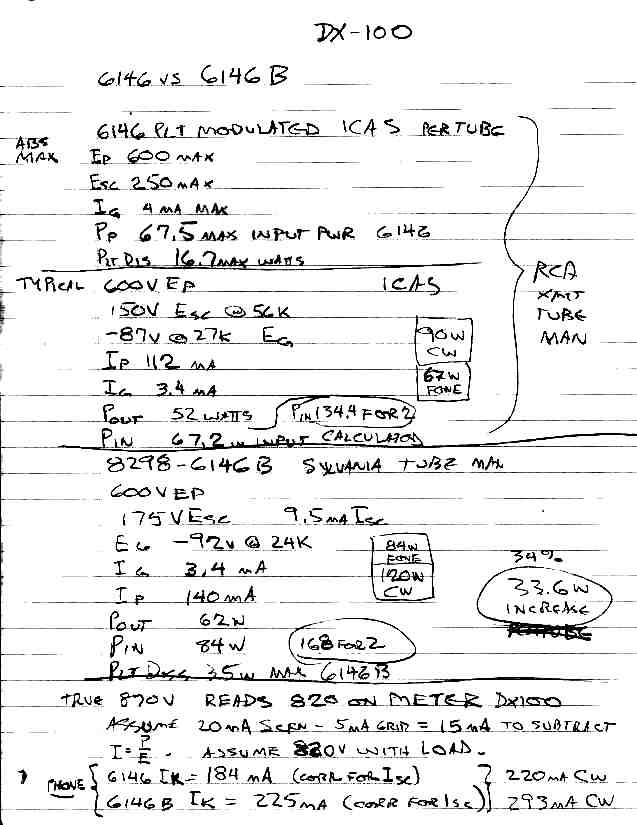 DX-100
6146 VS 6146B
6146 PLT MODULATED ICAS PER TUBE
ABS MAX
EP 600 MAX
ESC 250 MAX
IG 4 MA MAX
PP 67.5 MAX INPUT PWR 6146
PLT DIS 16.7 MAX WATTS
TYPICAL 600V EP ICAS
RCA
XMT
TUBE
MAN
150V ESC @ 56K
-87V @ 27K EG
90W
CW
IP 112 MA
67W
FONE
IG 3.4 MA
POUT 52 WATTS PIN 134.4 FOR 2
PIN 67.2 W INPUT CALCULATED
8298-6146B SYLVANIA TUBE MAN
600V EP
175V ESC 9.5 MA ISC
EG -92V @ 24K
84W
FONE
IG 3.4 MA
120W
CW
34%
33.6W
INCREASE
IP 140 MA
POUT 62W
PIN 84W 168 FOR 2
PLT DISS 35W MAX 6146B
TRUE 870V READS 820 ON METER DX100
ASSUME 20MA SCRN - 5MA GRID = 15 MA TO SUBTRACT
I = P/E . ASSUME 820V WITH LOAD.
PHONE { 6146 IK = 184 MA (CORR FOR ISC) } 220 MA CW
6146B IK = 225 MA (CORR FOR ISC) } 293 MA CW